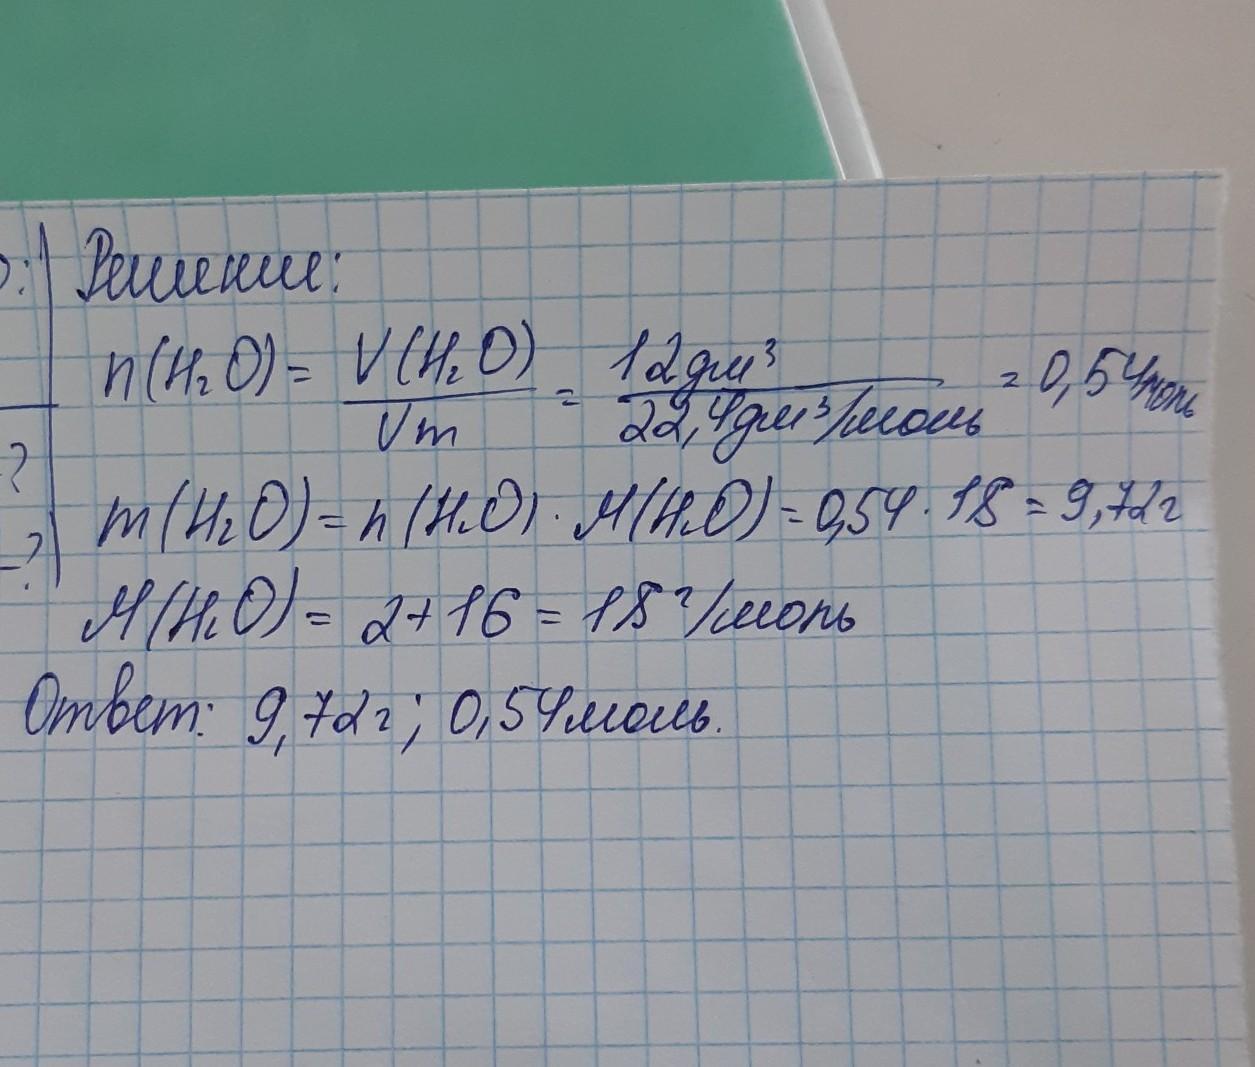 Решение:
n(H₂O) = V(H₂O)/Vm = 12дм³/22,4дм³/моль = 0,54моль
?
m(H₂O) = n(H₂O) · M(H₂O) = 0,54 · 18 = 9,72г
-?
M(H₂O) = 2+16 = 18 г/моль
Ответ: 9,72г; 0,54моль.